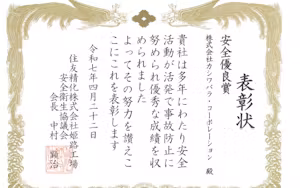 表彰状
安全優良賞
株式会社カシワバラ・コーポレーション 殿
貴社は多年にわたり安全
活動が活発で事故防止に
努められ優秀な成績を収
められました
よってその努力を讃えこ
こにこれを表彰します
令和七年四月二十二日
住友精化株式会社姫路工場
安全衛生協議会
会長 中村